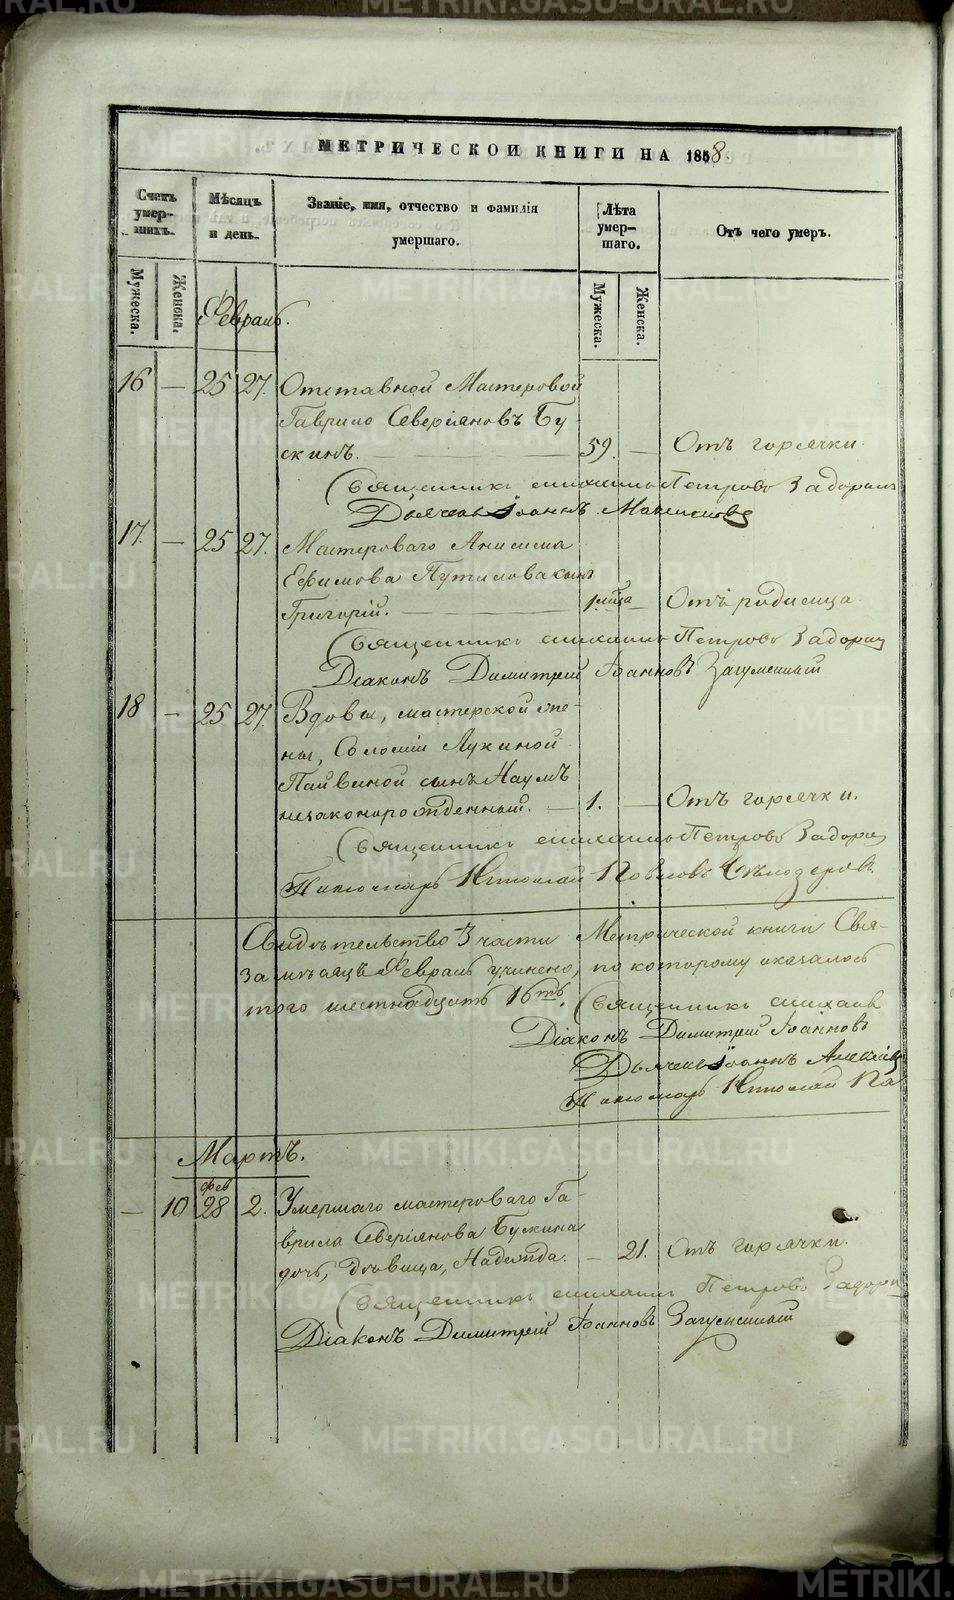 МЕТРИЧЕСКОЙ КНИГИ НА 1858.
Счетъ умер-шихъ.
Мѣсяцъ и день.
Званіе, имя, отчество и фамилія умершаго.
Лѣта умер-шаго.
Отъ чего умеръ.
Мужеска.
Женска.
Мужеска.
Женска.
Февраль.
16 — 25 27. Отставной Мастеровой
Гаврило Северіяновъ Бу-
скинъ. 59. — Отъ горячки.
Священникъ Михаилъ Петровъ Задорин
Дьячекъ Іоаннъ
17. — 25 27. Мастероваго Анисима
Ефимова Путилова сынъ
Григорій. 1 мѣса — Отъ родимца
Священникъ Михаилъ Петровъ Задорин
Діаконъ Димитрій Іоанновъ Загуменный
18 — 25 27. Вдовы, мастерской же-
ны, Соломіи Лукиной
Пайвиной сынъ Наумъ
незаконорожденный. — 1. — Отъ горячки.
Священникъ Михаилъ Петровъ Задорин
Пономарь Николай Павловъ Бѣлозеровъ
Свидѣтельство 3 части Метрической книги Свя-
за мѣсяцъ Февраль учинено, по которому оказалось
того шестнадцать 16ть. Священникъ Михаил
Діаконъ Димитрій Іоанновъ
Дьячекъ Іоаннъ
Пономарь Николай Па
Мартъ.
фев
— 10 28 2. Умершаго мастероваго Га-
врила Северіянова Бускина
дочь, дѣвица, Надежда. — 21. Отъ горячки.
Священникъ Михаилъ Петровъ Задорин
Діаконъ Димитрій Іоанновъ Загуменный
METRIKI.GASO-URAL.RU